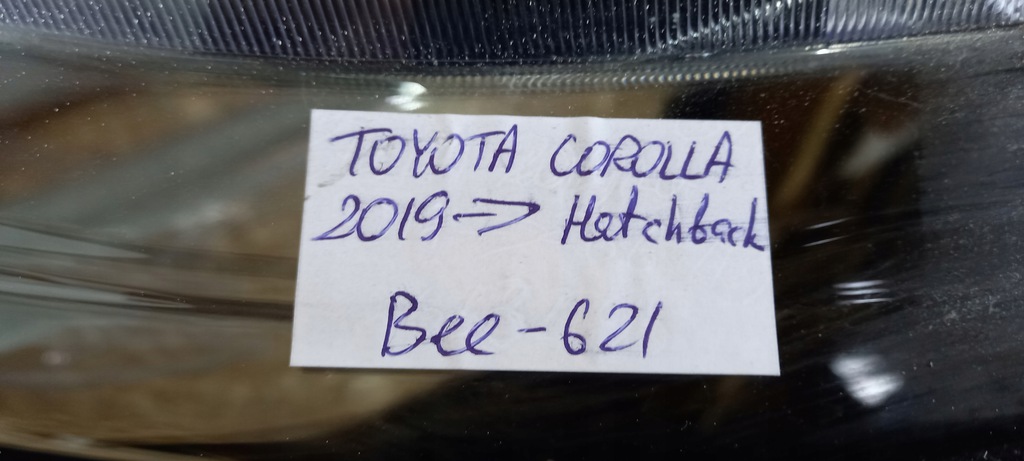 TOYOTA COROLLA
2019 → Hatchback
Bee-621